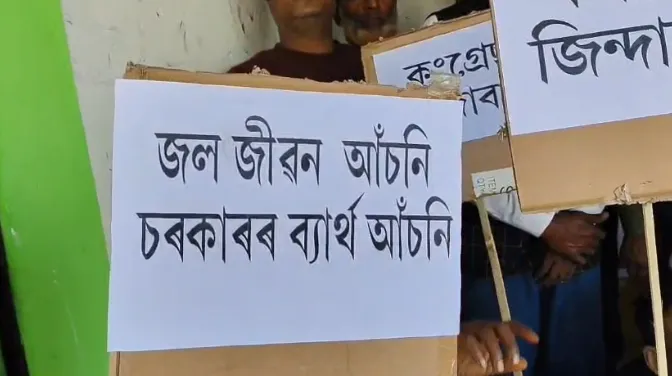 জল জীৱন আঁচনি
চৰকাৰৰ ব্যাৰ্থ আঁচনি
কংগ্ৰেছ
জিন্দা